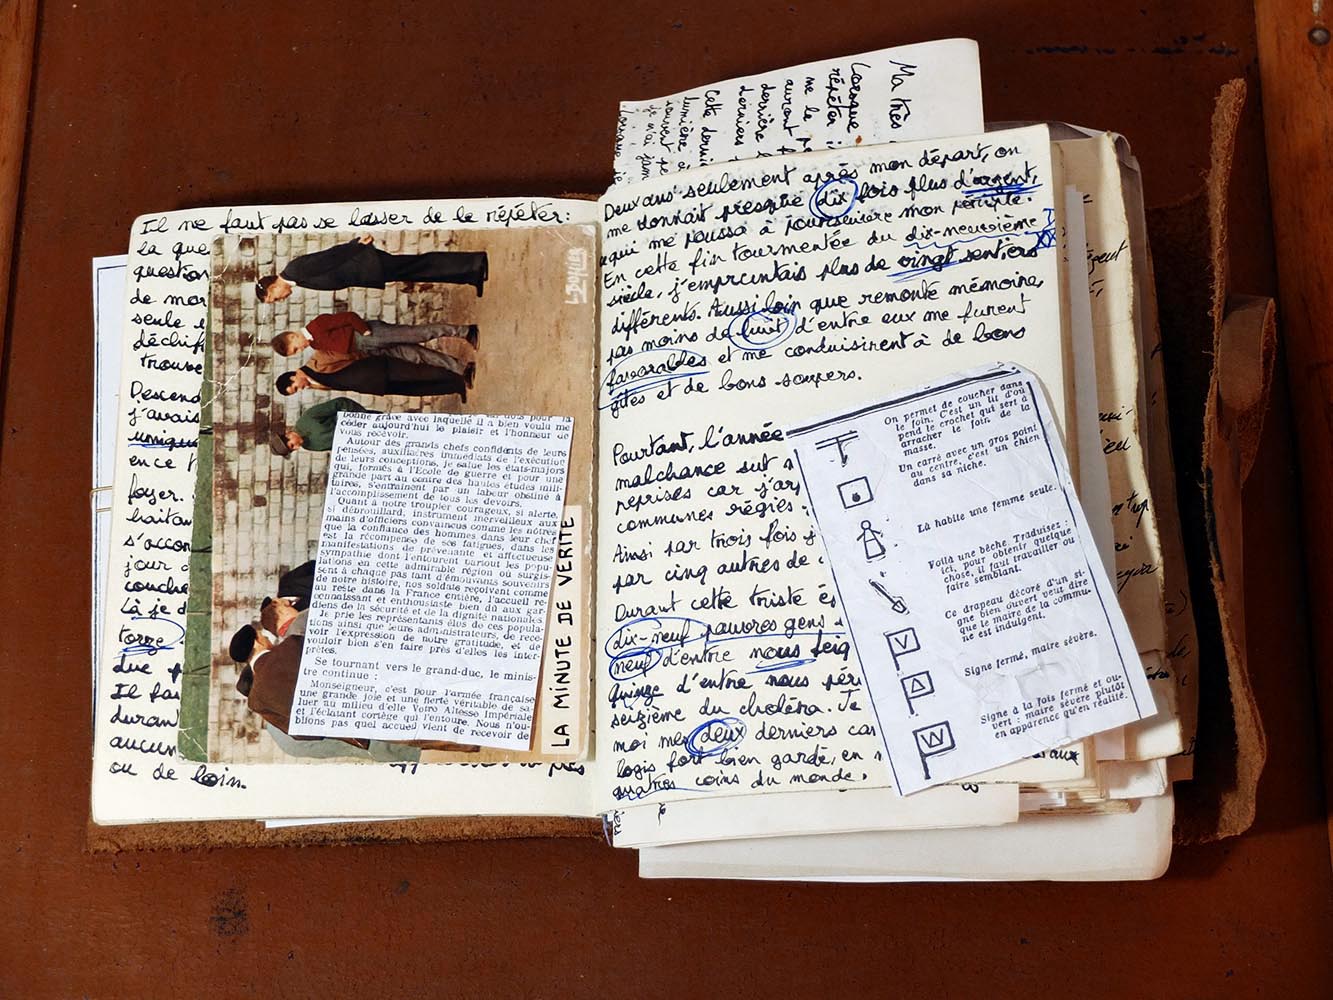 Il ne faut pas se lasser de le répéter:
la que
question
de mor
seule e
déchif
trouve
Descend
j'avais
unique
en ce t
foyer.
haitan
s'accom
jour d
couche
Là je d
terre
due p
Il fau
durant
aucun
ou de loin.
L. DOFLER
bonne grâce avec laquelle il a bien voulu me
céder aujourd'hui le plaisir et l'honneur de
vous recevoir.
Autour des grands chefs confidents de leurs
pensées, auxiliaires immédiats de l'exécution
de leurs conceptions, je salue les états-majors
qui, formés à l'Ecole de guerre et pour une
grande part au centre des hautes études mili-
taires, s'entraînent par un labeur obstiné à
l'accomplissement de tous les devoirs.
Quant à notre troupier courageux, si alerte,
si débrouillard, instrument merveilleux aux
mains d'officiers convaincus comme les nôtres
que la confiance des hommes dans leur chef
est la récompense de ses fatigues, dans les
manifestations de prévenante et affectueuse
sympathie dont l'entourent partout les popu-
lations en cette admirable région où surgis-
sent à chaque pas tant d'émouvants souvenirs
de notre histoire, nos soldats reçoivent comme
au reste dans la France entière, l'accueil re-
connaissant et enthousiaste bien dû aux gar-
diens de la sécurité et de la dignité nationales
Je prie les représentants élus de ces popula-
tions ainsi que leurs administrateurs, de rece-
voir l'expression de notre gratitude, et de
vouloir bien s'en faire près d'elles les inter-
prètes.
Se tournant vers le grand-duc, le minis-
tre continue :
Monseigneur, c'est pour l'armée française
une grande joie et une fierté véritable de sa-
luer au milieu d'elle Votre Altesse Impériale
et l'éclatant cortège qui l'entoure. Nous n'ou-
blions pas quel accueil vient de recevoir de
LA MINUTE DE VERITE
Ma très
Lorsque
répéter
me le pe
auront
derrière
derniers
Cette dernière
lumière
souvent pe
je n'ai jam
Deux ans seulement après mon départ, on
me donnait presque dix fois plus d'argent,
ce qui me poussa à poursuivre mon périple.
En cette fin tourmentée du dix-neuvième
siècle, j'empruntais plus de vingt sentiers
différents. Aussi loin que remonte mémoire,
pas moins de huit d'entre eux me furent
favorables et me conduisirent à de bons
gîtes et de bons soupers.
Pourtant, l'année
malchance sut
reprises car j'ar
communes régies
Ainsi par trois fois j
par cinq autres de
Durant cette triste é
dix-neuf pauvres gens
neuf d'entre nous
quinze d'entre nous pér
seizième du choléra. Je
moi mes deux derniers
logis fort bien gardé, en
quatres coins du monde.
On permet de coucher dans
le foin. C'est un lit d'où
pend le crochet qui sert à
arracher le foin de la
masse.
Un carré avec un gros point
au centre, c'est un chien
dans sa niche.
Là habite une femme seule.
Voilà une bêche. Traduisez :
ici, pour obtenir quelque
chose, il faut travailler ou
faire semblant.
Ce drapeau décoré d'un si-
gne bien ouvert veut dire
que le maire de la commu-
ne est indulgent.
Signe fermé, maire sévère.
Signe à la fois fermé et ou-
vert : maire sévère plutôt
en apparence qu'en réalité.
V
W